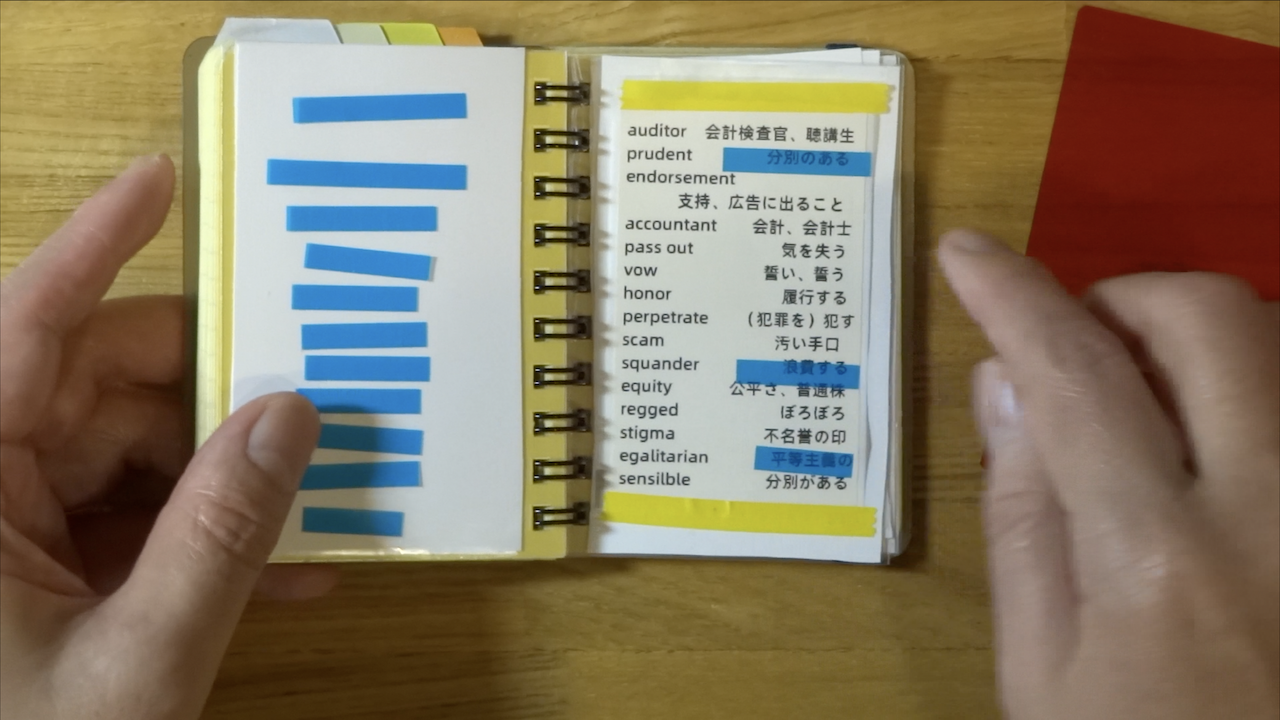 auditor 会計検査官、聴講生
prudent 分別のある
endorsement
支持、広告に出ること
accountant 会計、会計士
pass out 気を失う
vow 誓い、誓う
honor 履行する
perpetrate （犯罪を）犯す
scam 汚い手口
squander 浪費する
equity 公平さ、普通株
regged ぼろぼろ
stigma 不名誉の印
egalitarian 平等主義の
sensilble 分別がある